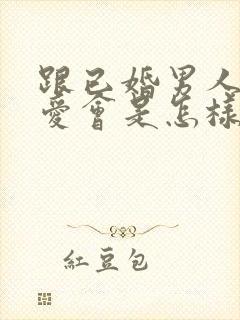 跟已婚男人
愛會是怎樣
紅豆包